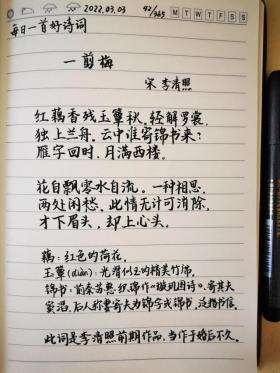 2022.03.03
42/365
M T W T F S S
每日一首好诗词
一剪梅
宋 李清照
红藕香残玉簟秋。轻解罗裳,
独上兰舟。云中谁寄锦书来?
雁字回时,月满西楼。
花自飘零水自流。一种相思,
两处闲愁。此情无计可消除,
才下眉头,却上心头。
藕:红色的荷花。
玉簟(diàn):光滑似玉的精美竹席。
锦书:前秦苏惠织锦作《璇玑图诗》,寄其夫
窦滔,后人称妻寄夫为锦字或锦书,泛指书信。
此词是李清照前期作品,当作于婚后不久。